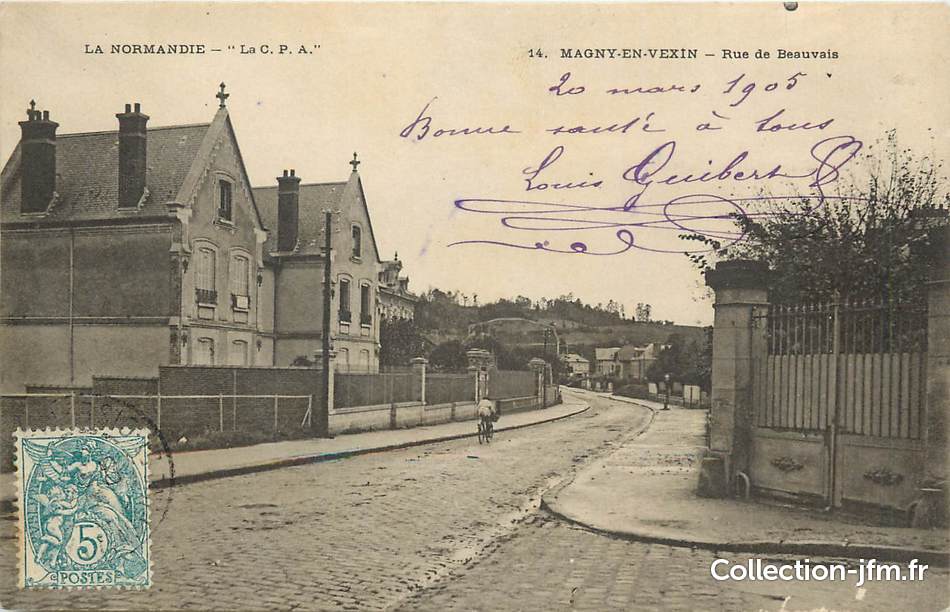 LA NORMANDIE - "La C. P. A."
14. MAGNY-EN-VEXIN - Rue de Beauvais
20 mars 1905
Bonne santé à tous
Louis Guibert
5c
POSTES
Collection-jfm.fr